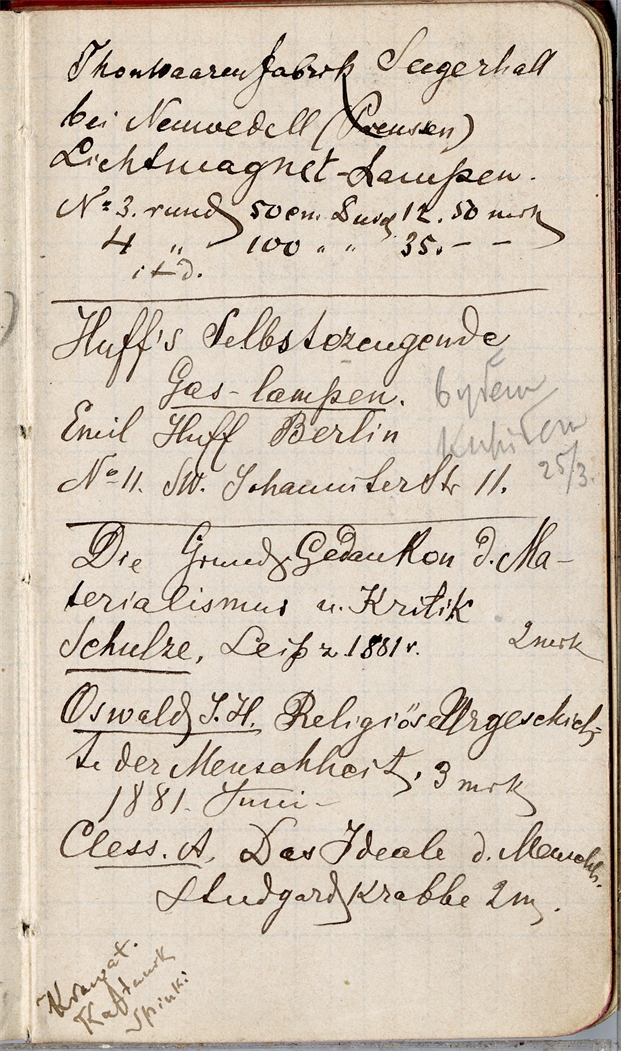 Thonwaarenfabrik Seegerhall
bei Neuwedell (Preussen)
Lichtmagnet-Lampen.
No 3. rund 50 cm. Durch 12.50 mrk
4 " 100 " " 35.- -
itd.
Huff's Selbsterzeugende
Gas-lampen.
Emil Huff Berlin
No 11. SW. Johanniterstr 11.
byłem
25/3.
Die Grund-Gedanken d. Ma-
terialismus u. Kritik
Schulze, Leipz. 1881 r. 2 mrk
Oswald J.H. Religiöse Urgeschich-
te der Menschheit, 3 mrk
1881. Juni -
Cless. A, Das Ideale d. Menschh.
Studgard Krabbe 2 m.
Krawat.
Kaftanik
Spinki